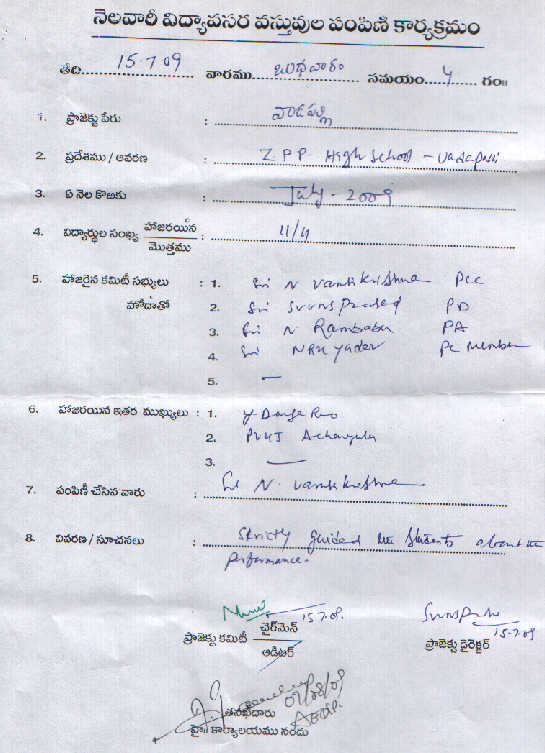 నెలవారీ విద్యాపసర వస్తువుల పంపిణీ కార్యక్రమం
తేది 15-7-09 వారము బుధవారం సమయం 4 గం॥
1. ప్రాజెక్టు పేరు : వాడపల్లి
2. ప్రదేశము / ఆవరణ : Z P P High School - Vadapalli
3. ఏ నెల కొఱకు : July - 2009
4. విద్యార్ధుల సంఖ్య హాజరయిన / మొత్తము : 11/11
5. హాజరైన కమిటీ సభ్యులు : 1. Sri N Vamsi Krishna PCC
హోదాతో 2. Sri SVVNS Prasad PD
3. Sri N Rambabu PA
4. Sri NRK Yadav PC Member
5. —
6. హాజరయిన ఇతర ముఖ్యులు : 1. Y Danga Rao
2. PVKJ Acharyulu
3. —
7. పంపిణీ చేసిన వారు : Sri N. Vamsi Krishna
8. వివరణ / సూచనలు : Strictly guided the Students about the
performance.
15-7-09.
ప్రాజెక్టు కమిటీ చైర్‌మెన్ / ఆడిటర్
15-7-09
ప్రాజెక్టు డైరెక్టర్
01/08/09
తనిఖీదారు
హై॥ కార్యాలయము నందు